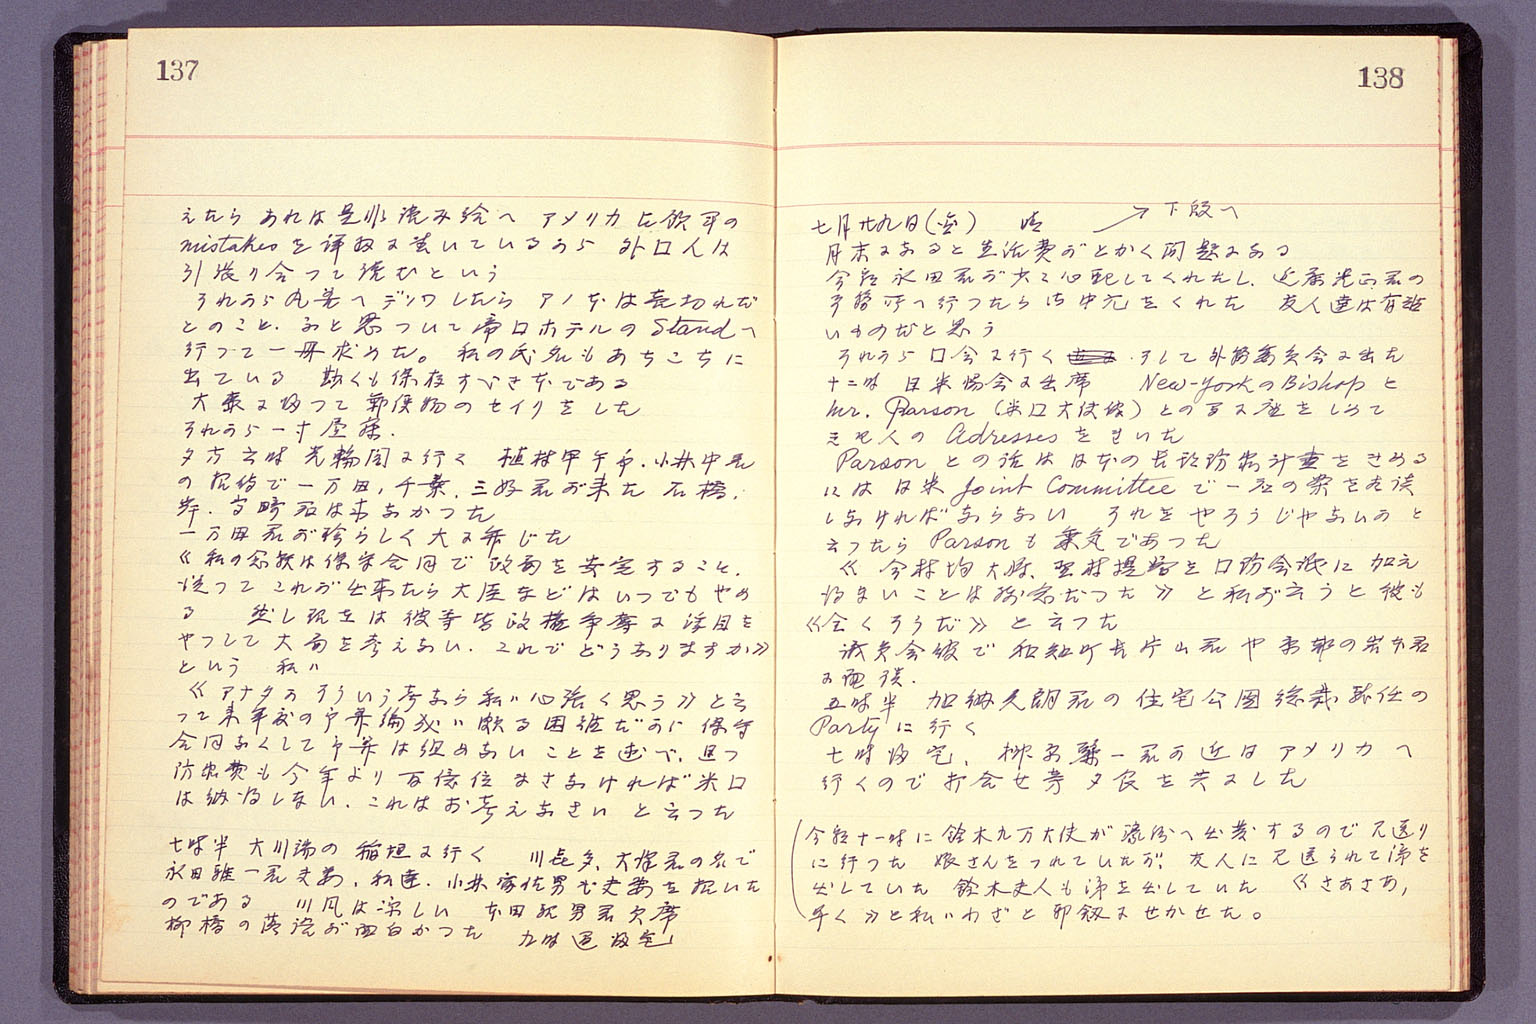 137
えたら あれは是非読み給へ アメリカ占領軍の
mistakesを詳細に書いているから 外口人は
引張り合って読むという
それから丸善へデンワしたら アノ本は売切れだ
とのこと. ふと思ついて帝口ホテルのStandへ
行って一冊求めた。 私の氏名もあちこちに
出ている 尠くも保存すべき本である
大東に帰って郵便物のセイリをした
それから一寸昼寝.
夕方六時 光輪閣に行く 植村甲午郎.小林中君
の招待で一万田,千葉,三好君が来た 石橋,
岸.宮崎君は来なかった
一万田君が珍らしく大に弁じた
《私の念願は保守合同で政局を安定すること.
従って これが出来たら大臣などはいつでもやめ
る 然し現在は彼等皆政権争奪に浮目を
やつして大局を考えない. これでどうなりますか》
という 私ハ
《アナタがそういう考なら私ハ心強く思う》と云
って来年度の予算編成ハ頗る困難だから 保守
合同なくして予算は組めないことを述べ, 且つ
防衛費も今年より百億位まさなければ米口
は納得しない. これはお考えなさい と云った
七時半 大川端の稲垣に行く 川喜多, 大塚君の名で
永田雅一君夫妻, 私達. 小林 夫妻を招いた
のである 川風は涼しい 本田親男君欠席
柳橋の落語が面白かった 九時過帰宅
138
七月廿九日(金) 晴 下段へ
月末になると生活費がとかく問題になる
今朝永田君が少々心配してくれたし, 近藤 君の
事務所へ行ったら御中元をくれた 友人達は有難
いものだと思う
それから口会に行く .そして外務委員会に出た
十二時 日米協会に出席 New-YorkのBishopと
Mr. Parson (米口大使館) との 話をしめて
主 人の Adressesをきいた
Parsonとの話は日本の長期防衛計画をきめる
には日米 Joint Committeeで一応の案を相談
しなければならない それをやろうじやないかと
云ったら Parsonも乗気であった
《今村均大将, 野村提督を口防会議に加え
得ないことは残念だった》と私が云うと彼も
《全くそうだ》と云った
議員会館で和知町長片山君や京都の岩本君
に面談.
五時半 加納久朗君の住宅公団総裁就任の
Partyに行く
七時帰宅, 柳 一君が近日アメリカへ
行くので打合せ旁夕食を共にした
今朝十一時に鈴木九万大使が濠洲へ出発するので見送り
に行った 娘さんをつれていたが, 友人に見送られて涙を
出していた 鈴木夫人も涙を出していた 《さあさあ,
早く》と私ハわざと邪剣にせかせた。